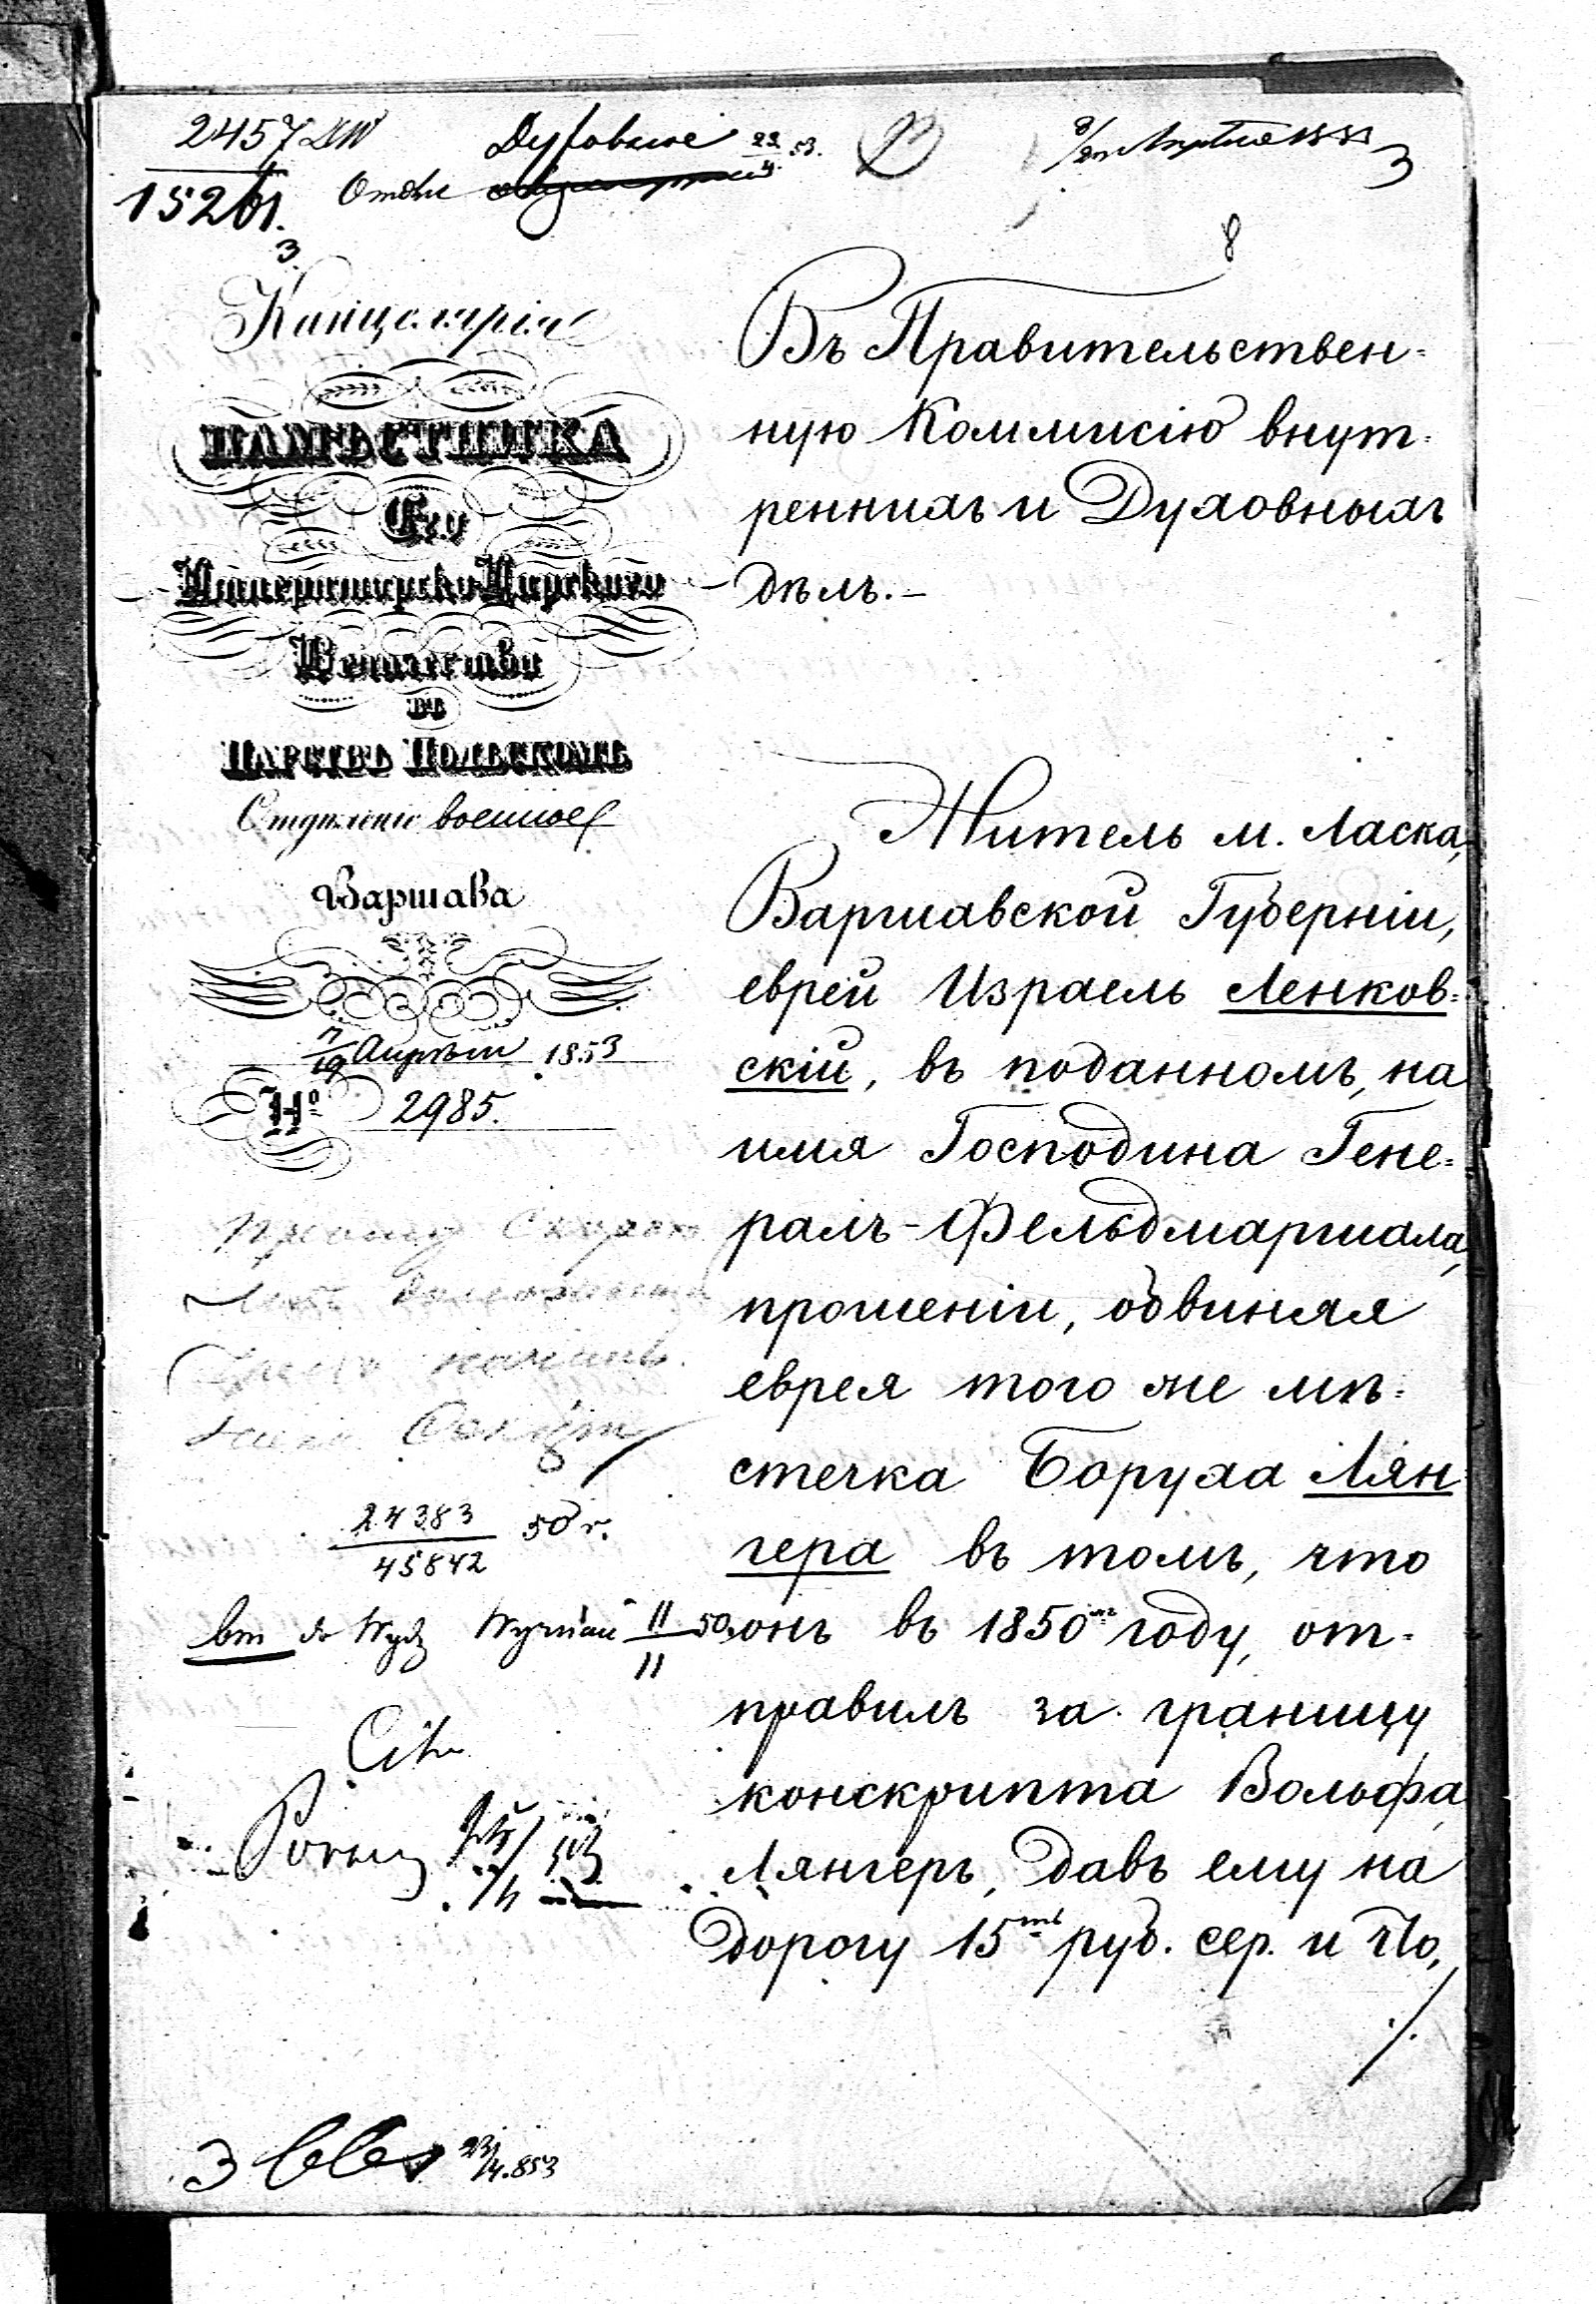 2457 DW
15261.
3
Духовные 22/4 53.
Отдѣл
8
Канцелярія
НАМѢСТНИКА
Его
Императорско Царскаго
Величества
въ
ЦАРСТВѢ ПОЛЬСКОМЪ
Отдѣленіе военное
Варшава
7/19 Апрѣля 1853
№ 2985.
Въ Правительствен-
ную Коммисію внут-
реннихъ и Духовныхъ
дѣлъ.-
Житель м. Ласка,
Варшавской Губерніи,
еврей Израель Ленков-
скій, въ поданномъ, на
имя Господина Гене-
ралъ-Фельдмаршала,
прошеніи, обвиняя
еврея того же мѣ-
стечка Боруха Лян-
гера въ томъ, что
онъ въ 1850мъ году, от-
правилъ за границу
конскрипта Вольфа
Лянгеръ, давъ ему на
дорогу 15ть руб. сер. и что,
./.
24383 50 r.
45842
do Wydz 11/11 50
23/4.853